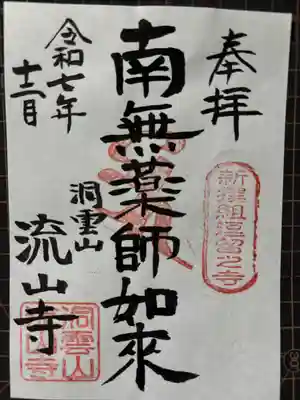 奉拝
新撰組逗留之寺
南無薬師如来
洞雲山
流山寺
洞雲山
流山寺
令和七年
十二月